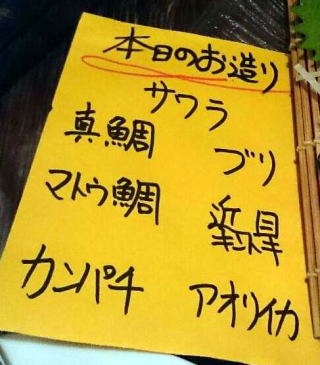 本日のお造り
サワラ
真鯛
ブリ
マトウ鯛
カンパチ
アオリイカ